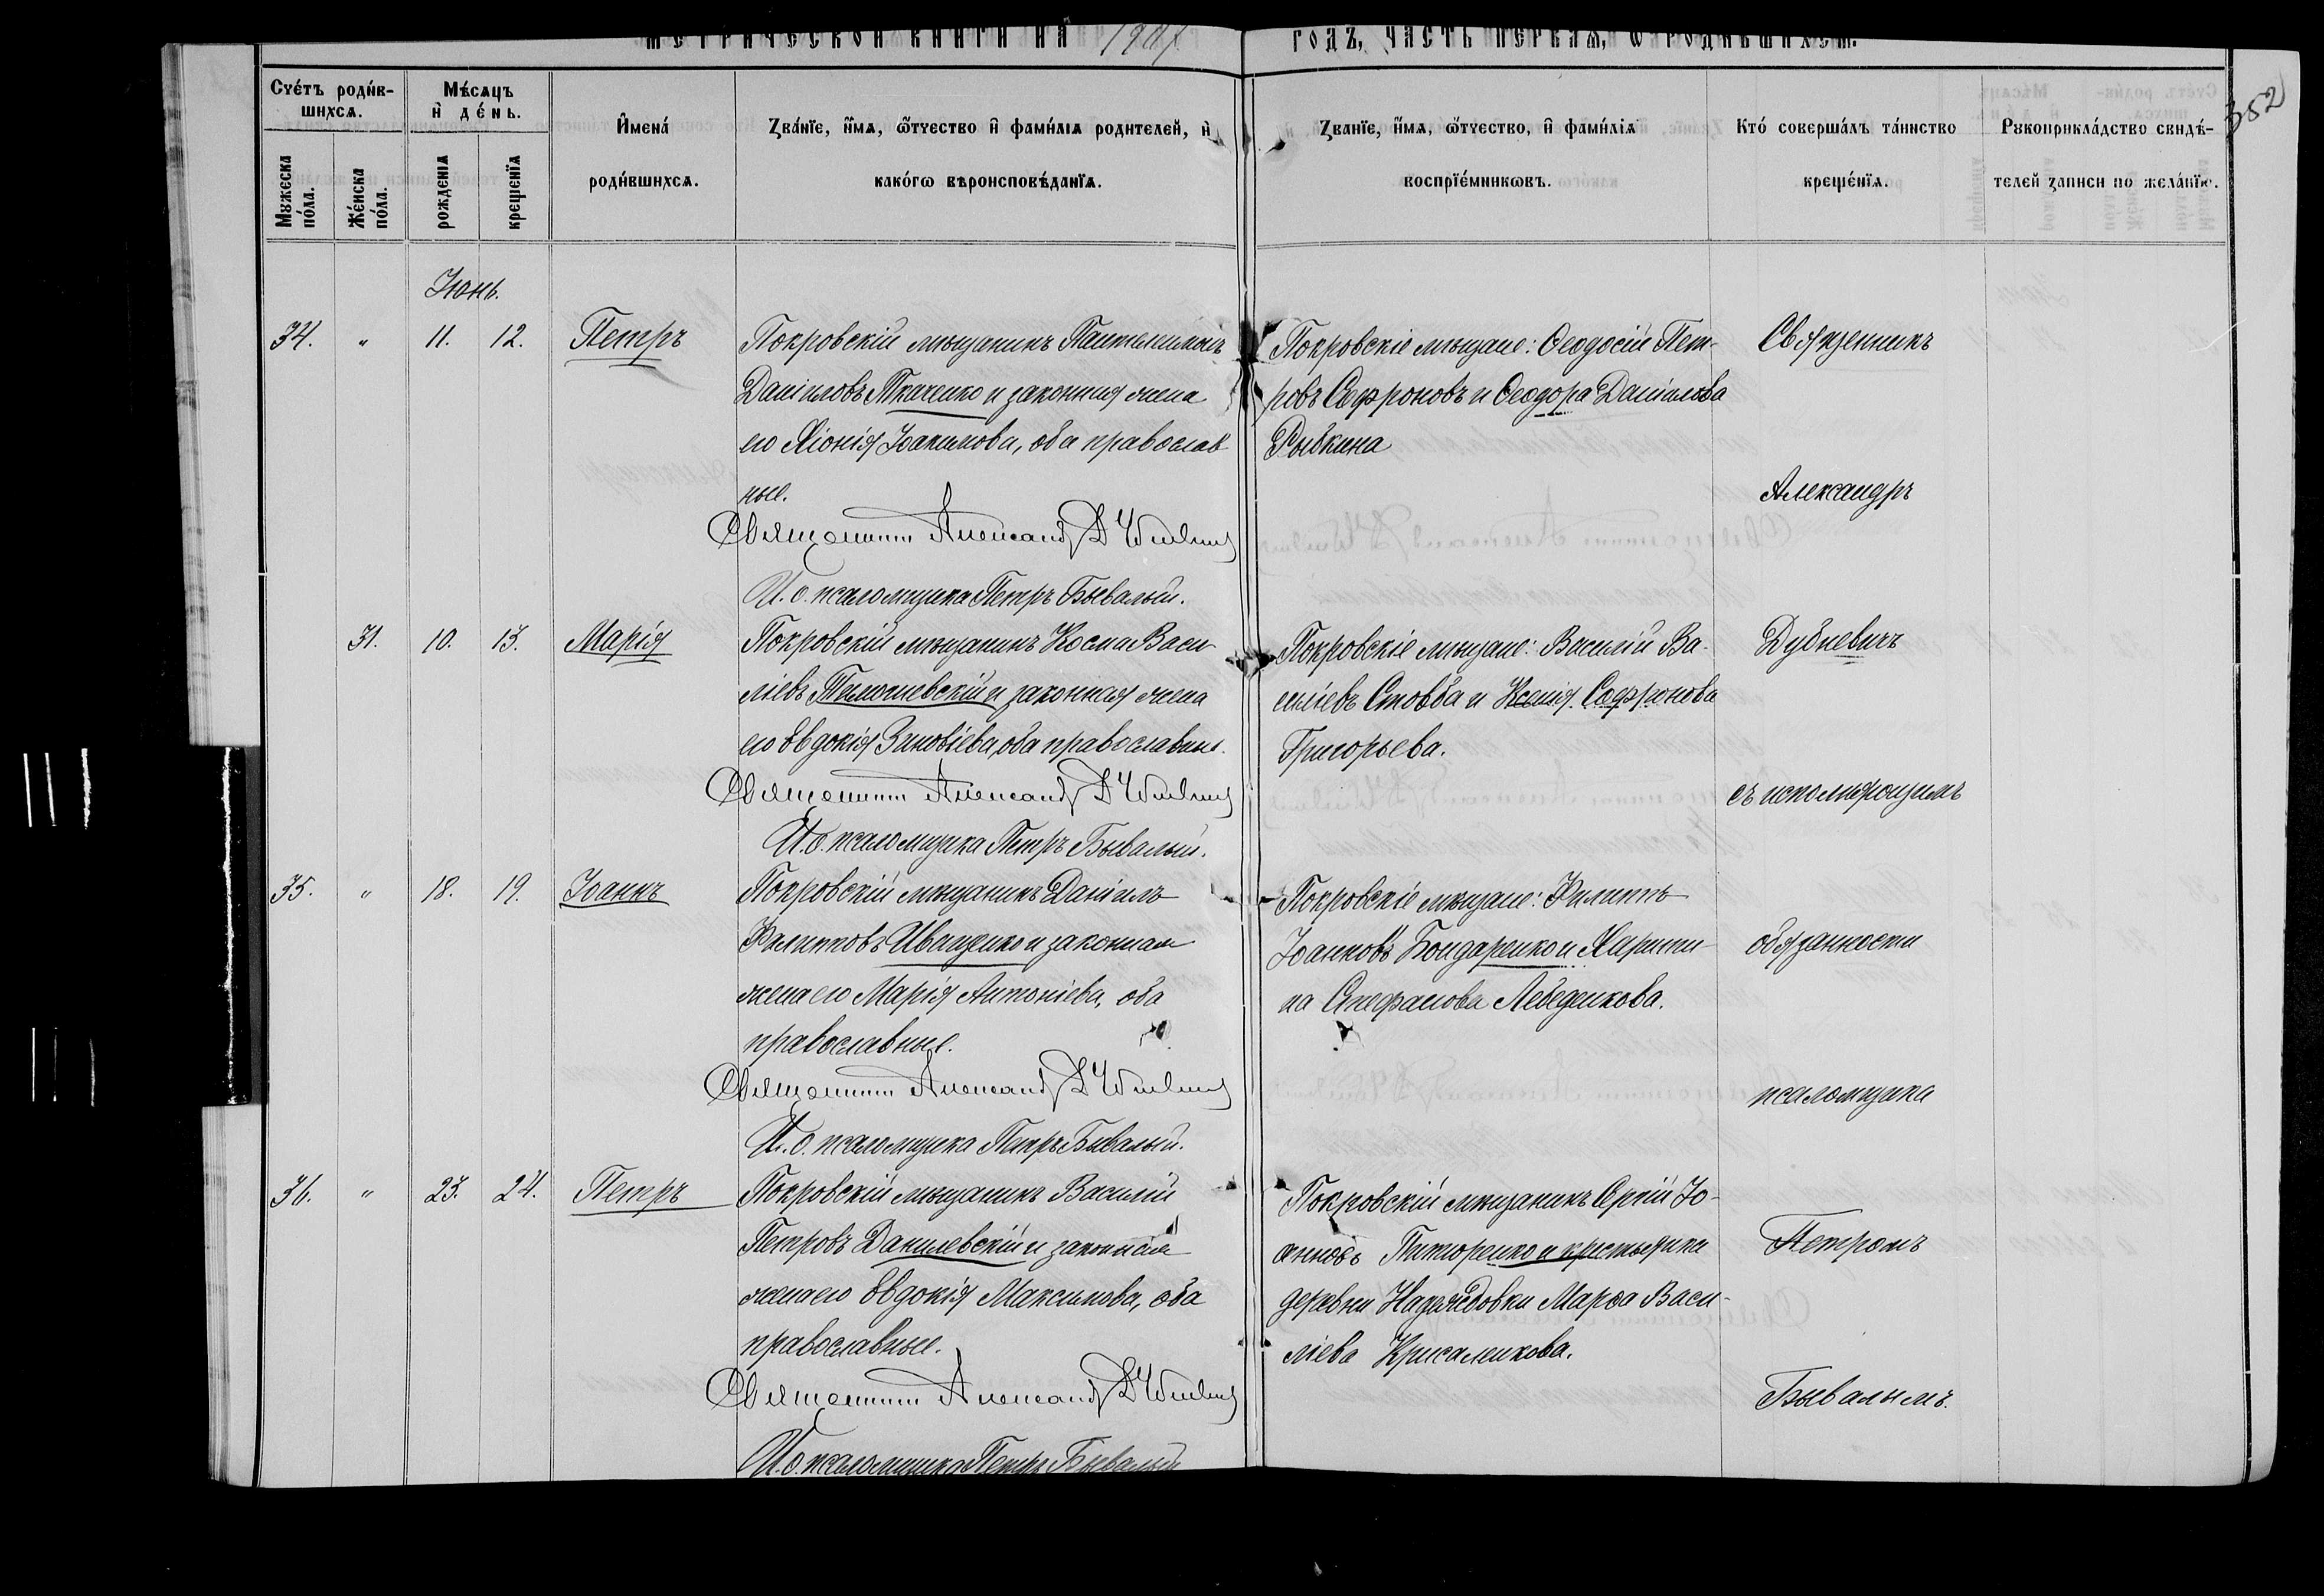 МЕТРИЧЕСКОЙ КНИГИ НА 1907 ГОДЪ, ЧАСТЬ ПЕРВАЯ, Ѡ РОДИВШИХСЯ.
352
Сче́тъ роди́в-
шихсѧ.
Мꙋжеска по́ла.
Же́нска по́ла.
Мѣ́сѧцъ
и҆ де́нь.
рожденїѧ
крещенїѧ
И҆мена́
роди́вшихсѧ.
Зва́нїе, и҆́мѧ, ѻ҆́тчество и҆ фами́лїѧ родителей, и҆
како́гѡ вѣроисповѣ́данїѧ.
Зва́нїе, и҆́мѧ, ѻ҆́тчество, и҆ фами́лїѧ
воспрїе́мникѡвъ.
Кто́ соверша́лъ та́инство
креще́нїѧ.
Рꙋкоприкла́дство свидѣ́-
телей записи по жела́нїю.
Іюнь.
34. " 11. 12. Петръ
Покровскій мѣщанинъ Пантелимонъ
Даніиловъ Ткаченко и законная жена
его Хіонія Іоакимова, оба православ
ные.
Священникъ Александръ Дубневичъ
И. о. псаломщика Петръ Бывалый.
Покровскіе мѣщане: Ѳеодосій Пет-
ровъ Софроновъ и Ѳеодора Даніилова
Рыбкина
Священникъ
Александръ
31. 10. 13. Марія
Покровскій мѣщанинъ Косма Васи-
ліевъ и законная жена
его Евдокія Зиновіева, оба православны.
Священникъ Александръ Дубневичъ
И. о. псаломщика Петръ Бывалый.
Покровскіе мѣщане: Василій Ва-
силіевъ Стовба и Ксенія Софронова
Григорьева.
Дубневичъ
съ исполняющимъ
35. " 18. 19. Іоаннъ
Покровскій мѣщанинъ Даніилъ
Филипповъ Иващенко и законная
жена его Марія Антоніева, оба
православные.
Священникъ Александръ Дубневичъ
И. о. псаломщика Петръ Бывалый.
Покровскіе мѣщане: Филиппъ
Іоанновъ Бондаренко и Харити-
на Стефанова Лебеденкова.
обязанности
псаломщика
36. " 23. 24. Петръ
Покровскій мѣщанинъ Василій
Петровъ Данилевскій и законная
жена его Евдокія Максимова, оба
православные.
Священникъ Александръ Дубневичъ
И. о. псаломщика Петръ Бывалый
Покровскій мѣщанинъ Сергій Іо-
анновъ и крестьянка
деревни Марѳа Васи-
ліева Крисаленкова.
Петромъ
Бывалымъ.